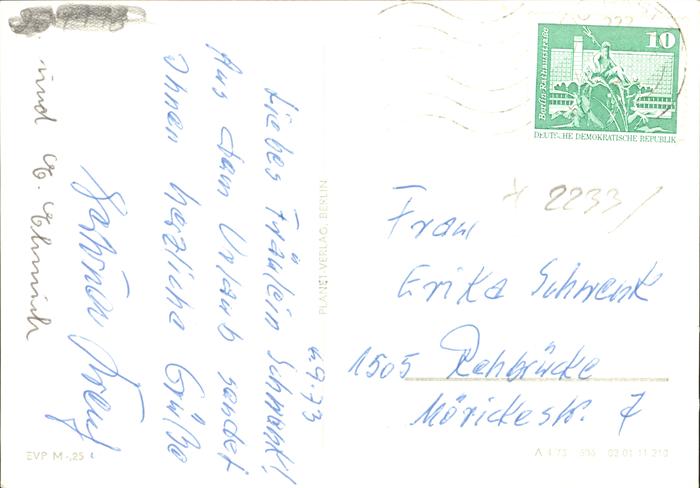 6.9.73
Liebes Fräulein Schwenk!
Aus dem Urlaub sendet
Ihnen herzliche Grüße
und
PLANET-VERLAG, BERLIN
EVP M -,25
10
Berlin-Rathausstraße
DEUTSCHE DEMOKRATISCHE REPUBLIK
2233/
Frau
Erika Schwenk
1505 Rehbrücke
Mörickestr. 7
02 01 11 210